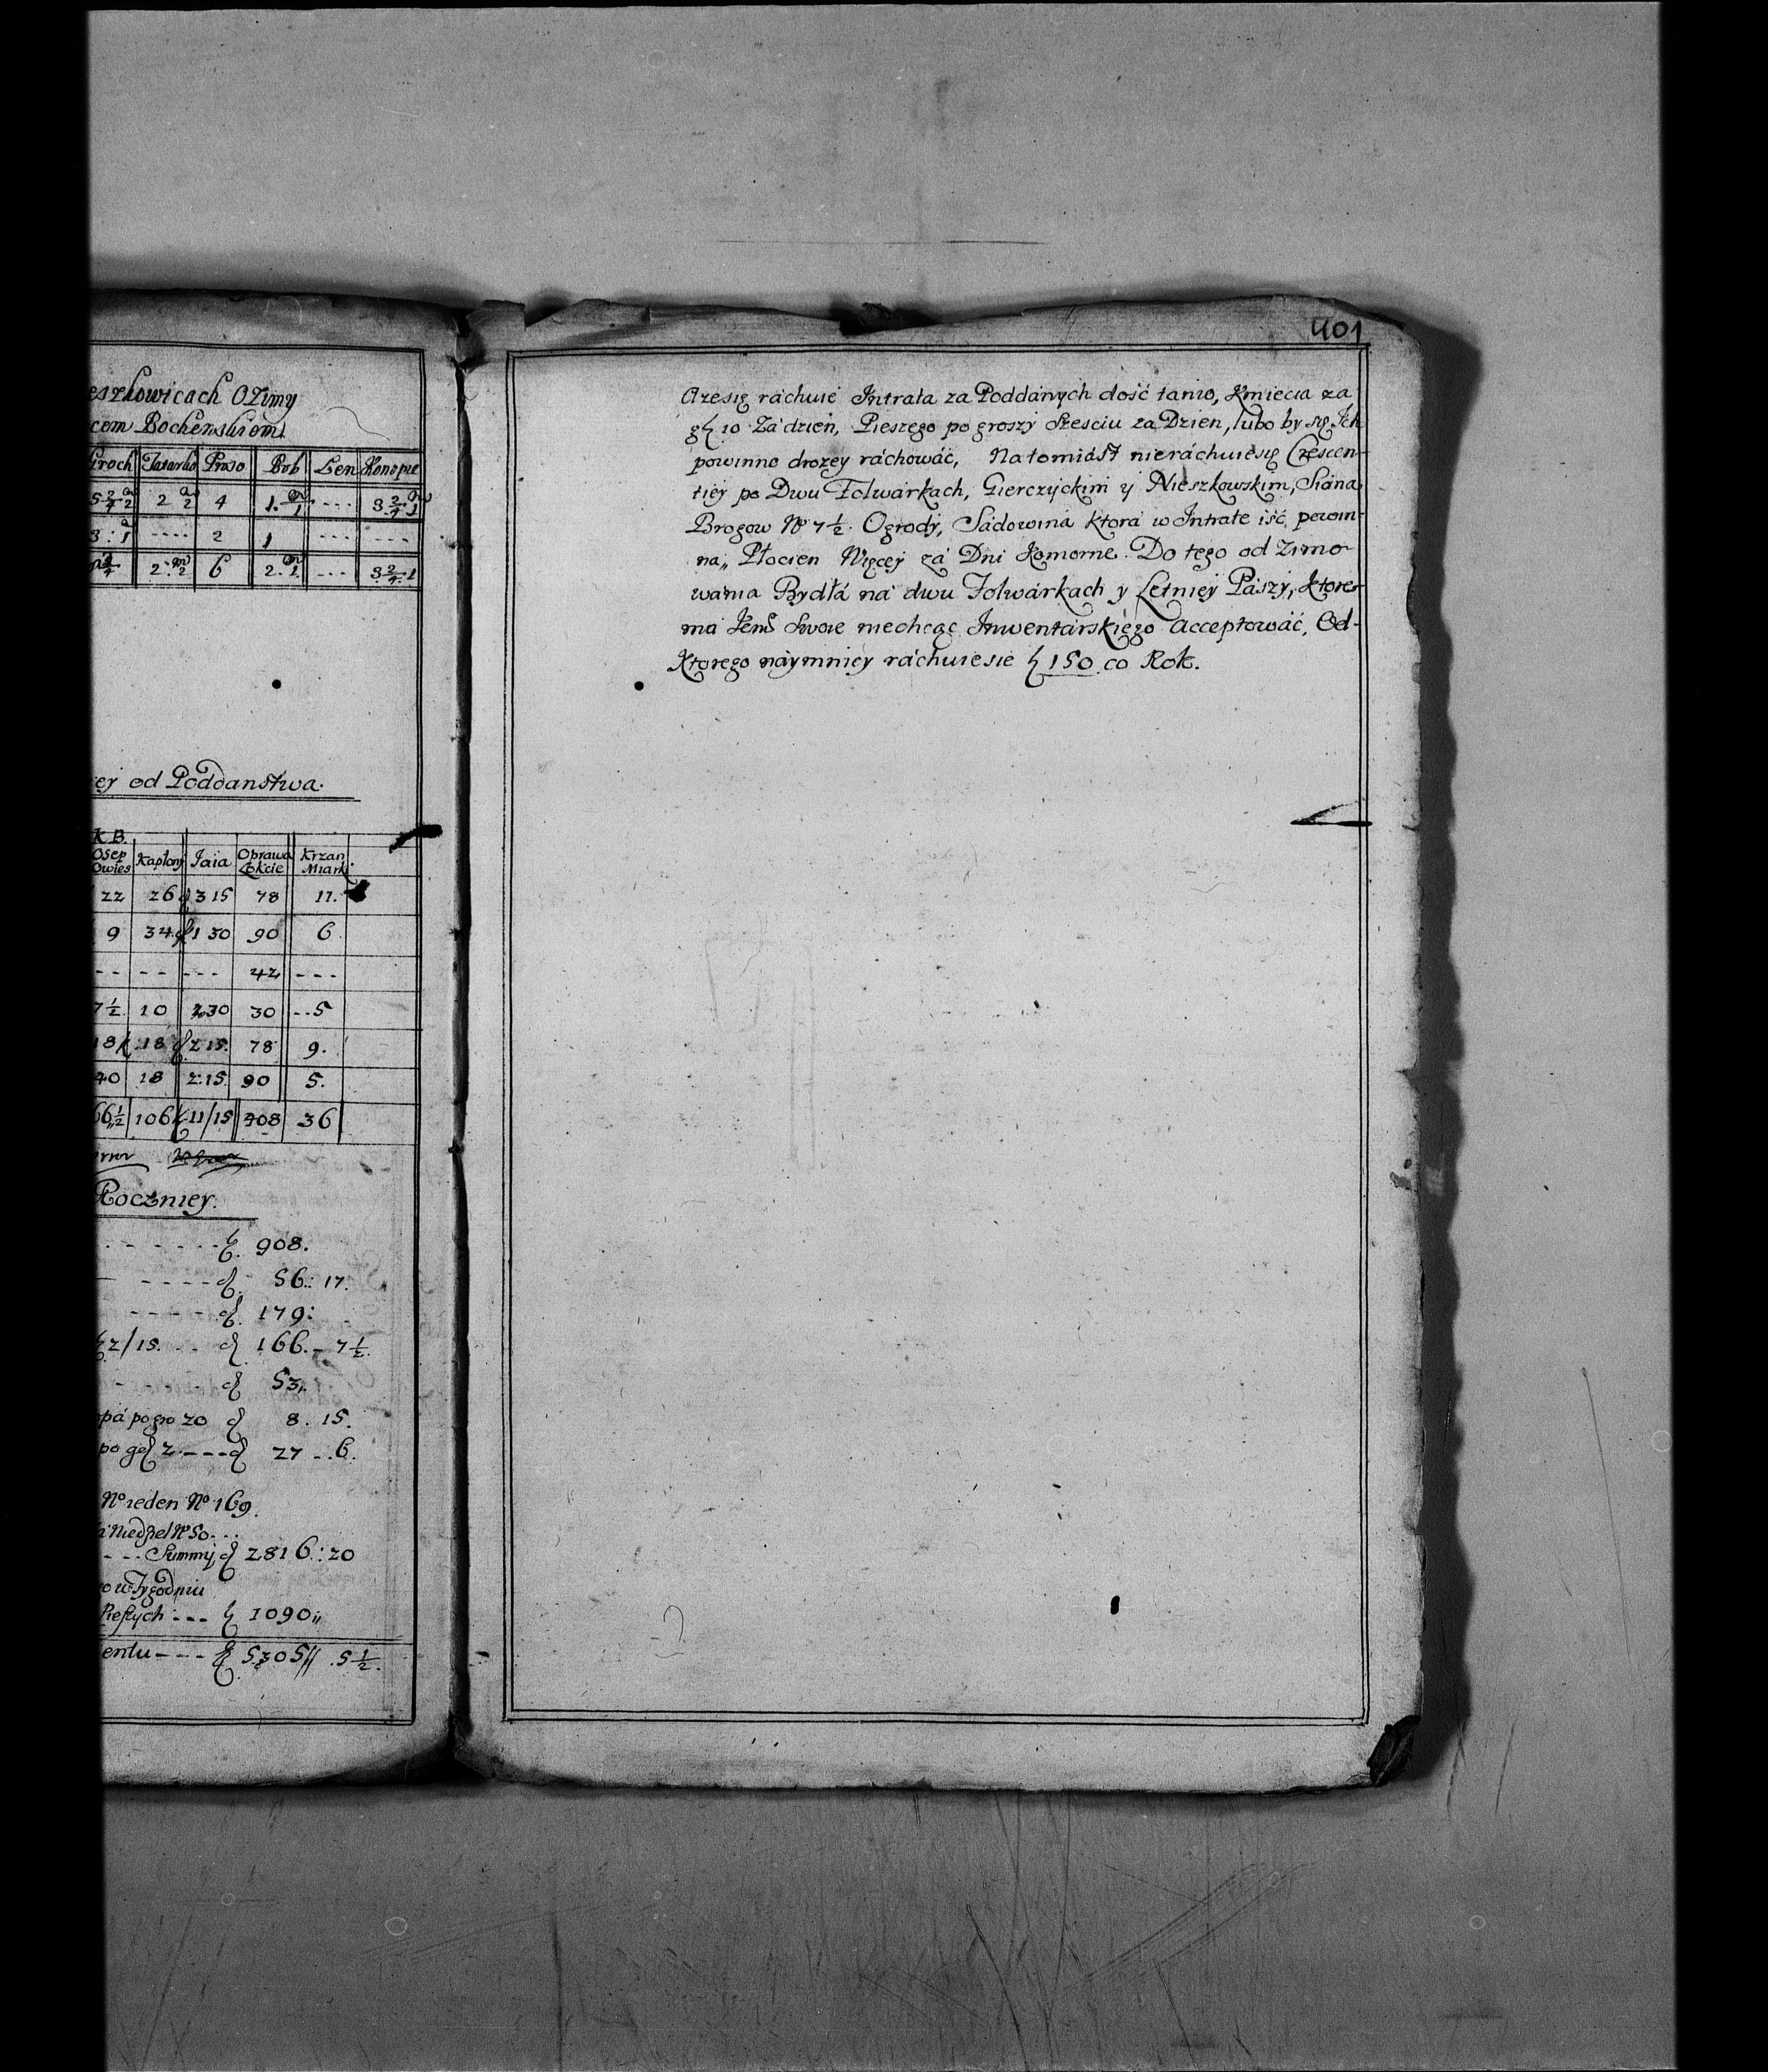 eszkowicach Ozimy
cem Bochenskiem
Groch Tatarka Proso Bob Len Konopie
5 2/4 2 2 2 4 1. 1 --- 3 2/4 1
3 : 1 ---- 2 1 --- ---
2 2 6 2. 1 --- 3 2/4 1
ey od Poddanstwa.
K.B.
Osep Owies Kapłony Jaia Oprawa Łokcie Krzan Miark
22 26 3 15 78 11.
9 34 1 30 90 6
-- -- --- 42 ---
7½ 10 2 30 30 --5
18 18 2 15. 78 9.
40 18 2.15. 90 5.
66½ 106 11/15 408 36
Roczniey.
------ 908.
---- 56.: 17.
---- 179:
2/15. -- 166.- 7½.
----- 53,,
pá po gro 20 8. 15.
po 2.--- 27 -.6.
No ieden No 169.
á Niedziel No 50...
--- Summy 2816.:20
o w Tygodniu
Pieszych --- 1090,,
entu --- 5305// .5½.
401
Azesię ráchuie Intrata za Poddánych dość tanio, Kmiecia za
10 Zá dzien, Pieszego po groszy szesciu za Dzien, lubo by się Ich
powinno drozey ráchowáć, Natomiást nieráchuiesię Crescen-
tiey po Dwu Folwárkach, Gierczyckim y Nieszkowskim, Siána
Brogow No 7½. Ogrody, Sádowina ktorá w Intrate iść powin-
na,, Płocien Więcey zá Dni Komorne. Do tego od Zimo-
wania Bydłá ná dwu Folwárkach y Letniey Pászy, ktore
má swoie niechcąc Inwentarskiego Acceptowáć, Od-
Ktorego náymniey ráchuiesie 150 co Rok.